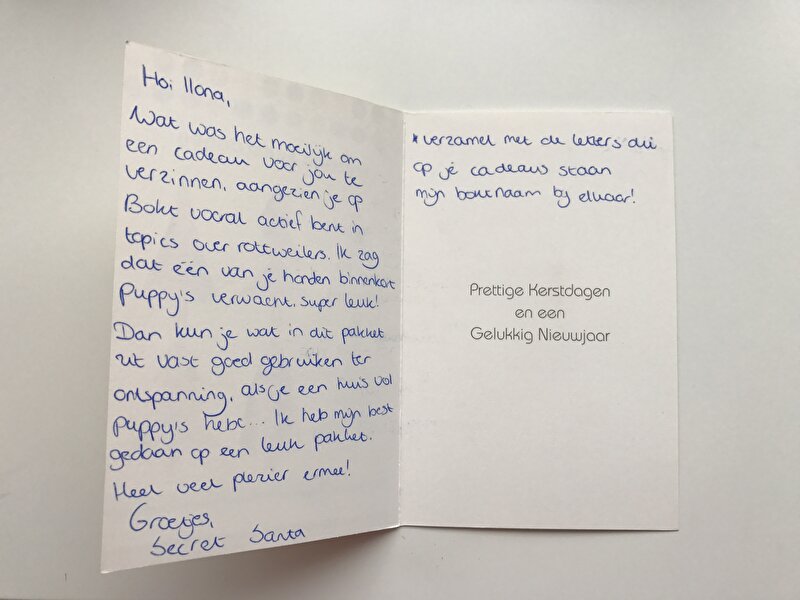 Hoi Ilona,
Wat was het moeilijk om
een cadeau voor jou te
verzinnen, aangezien je op
Bokt vooral actief bent in
topics over rottweilers. Ik zag
dat één van je honden binnenkort
puppy's verwacht, super leuk!
Dan kun je wat in dit pakket
zit vast goed gebruiken ter
ontspanning, als je een huis vol
puppy's hebt... Ik heb mijn best
gedaan op een leuk pakket.
Heel veel plezier ermee!
Groetjes,
Secret Santa
* verzamel met de letters die
op je cadeaus staan
mijn boktnaam bij elkaar!
Prettige Kerstdagen
en een
Gelukkig Nieuwjaar